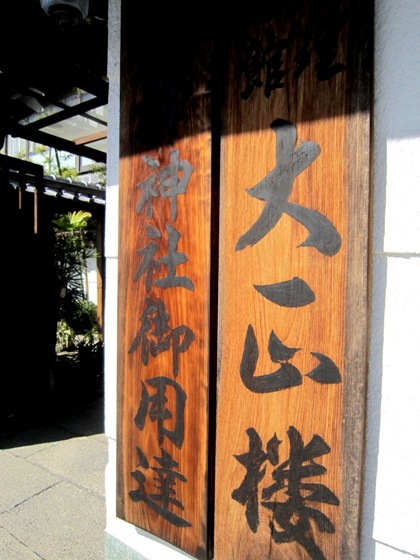 旅館
大正楼
神社御用達